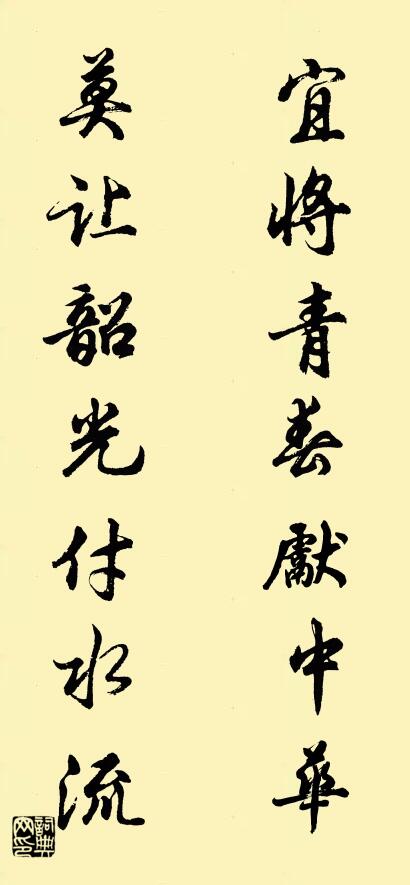 宜将青春獻中華
莫让韶光付水流
詞典网印